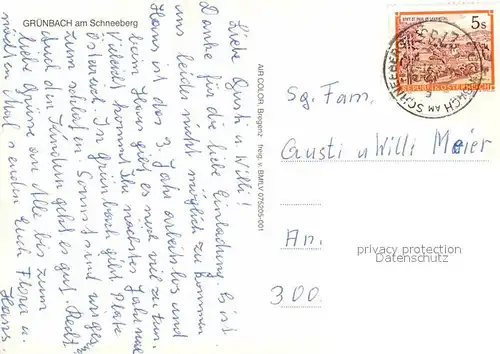 GRÜNBACH am Schneeberg
Liebe Gusti u Willi!
Danke für die liebe Einladung. Es ist
uns leider nicht möglich zu kommen
Hans ist das 3. Jahr arbeitslos und
beim Haus gibt es noch viel zu tun.
Vielleicht kommt Ihr nächstes Jahr nach
Österreich. In Grünbach gibt Platz
zum schlafen. Sonst sind wir ges.
Auch den Kindern geht es gut. Recht
liebe Grüsse an Alle bis zum
nächsten Mal senden Euch Flora u.
Hans.
AIR COLOR, Bregenz freig. v. BMLV 075205-001
5s
REPUBLIK ÖSTERREICH
Sg. Fam.
Gusti u Willi Meier
An.
300.
privacy protection
Datenschutz